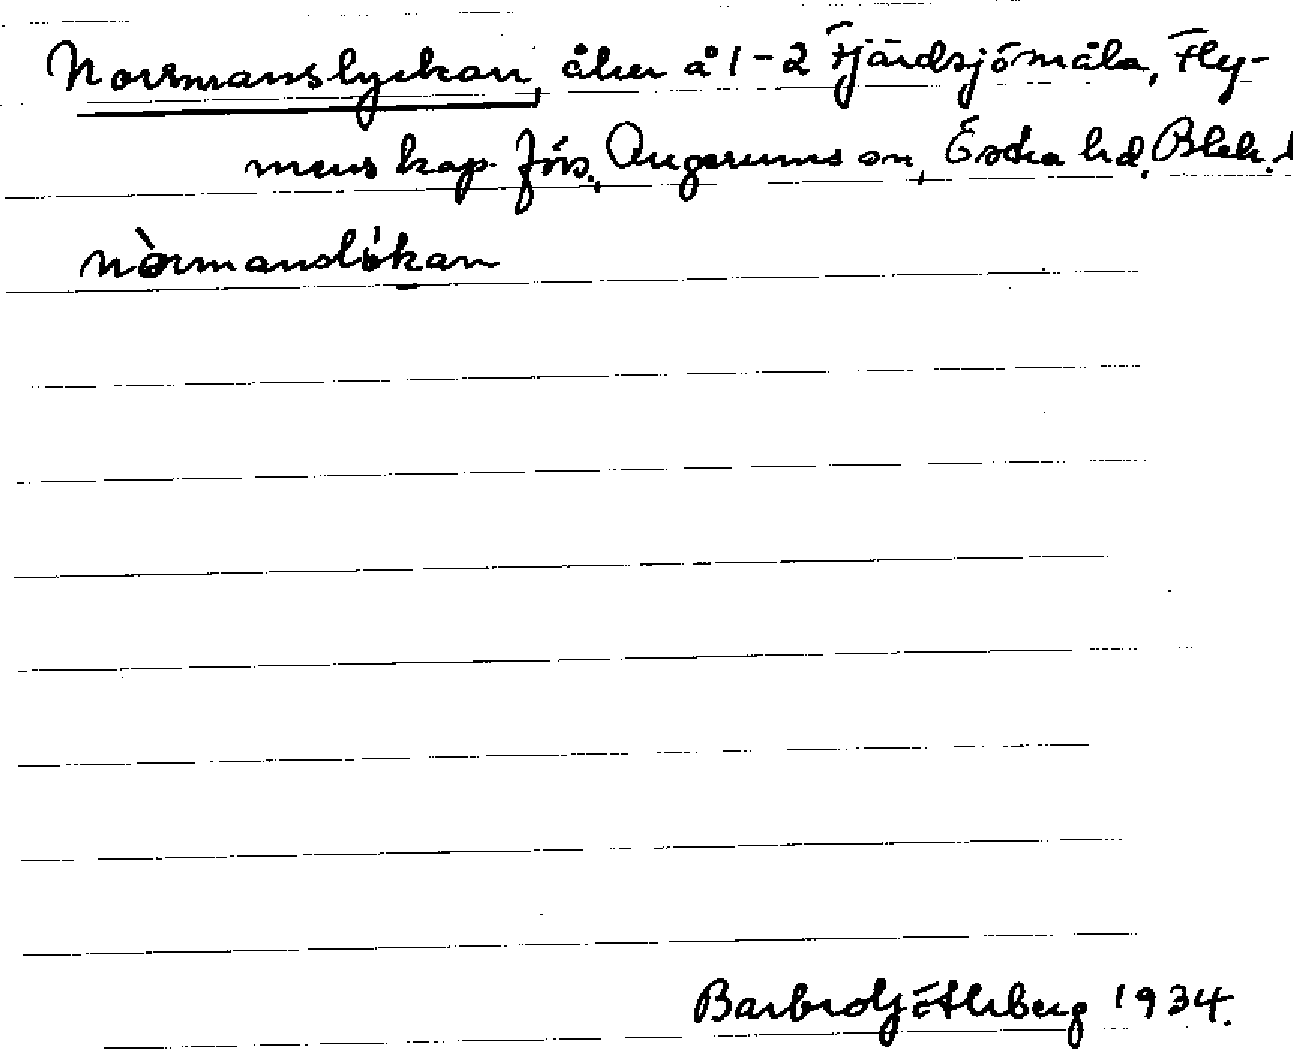 Norrmanslyckan, åker å 1-2 Fjärdsjömåla, Fly-
mens kap. förs., Augerums sn, Östra hd, Blek. l
nòrmanslỳkan
Barbro Götlberg 1934.